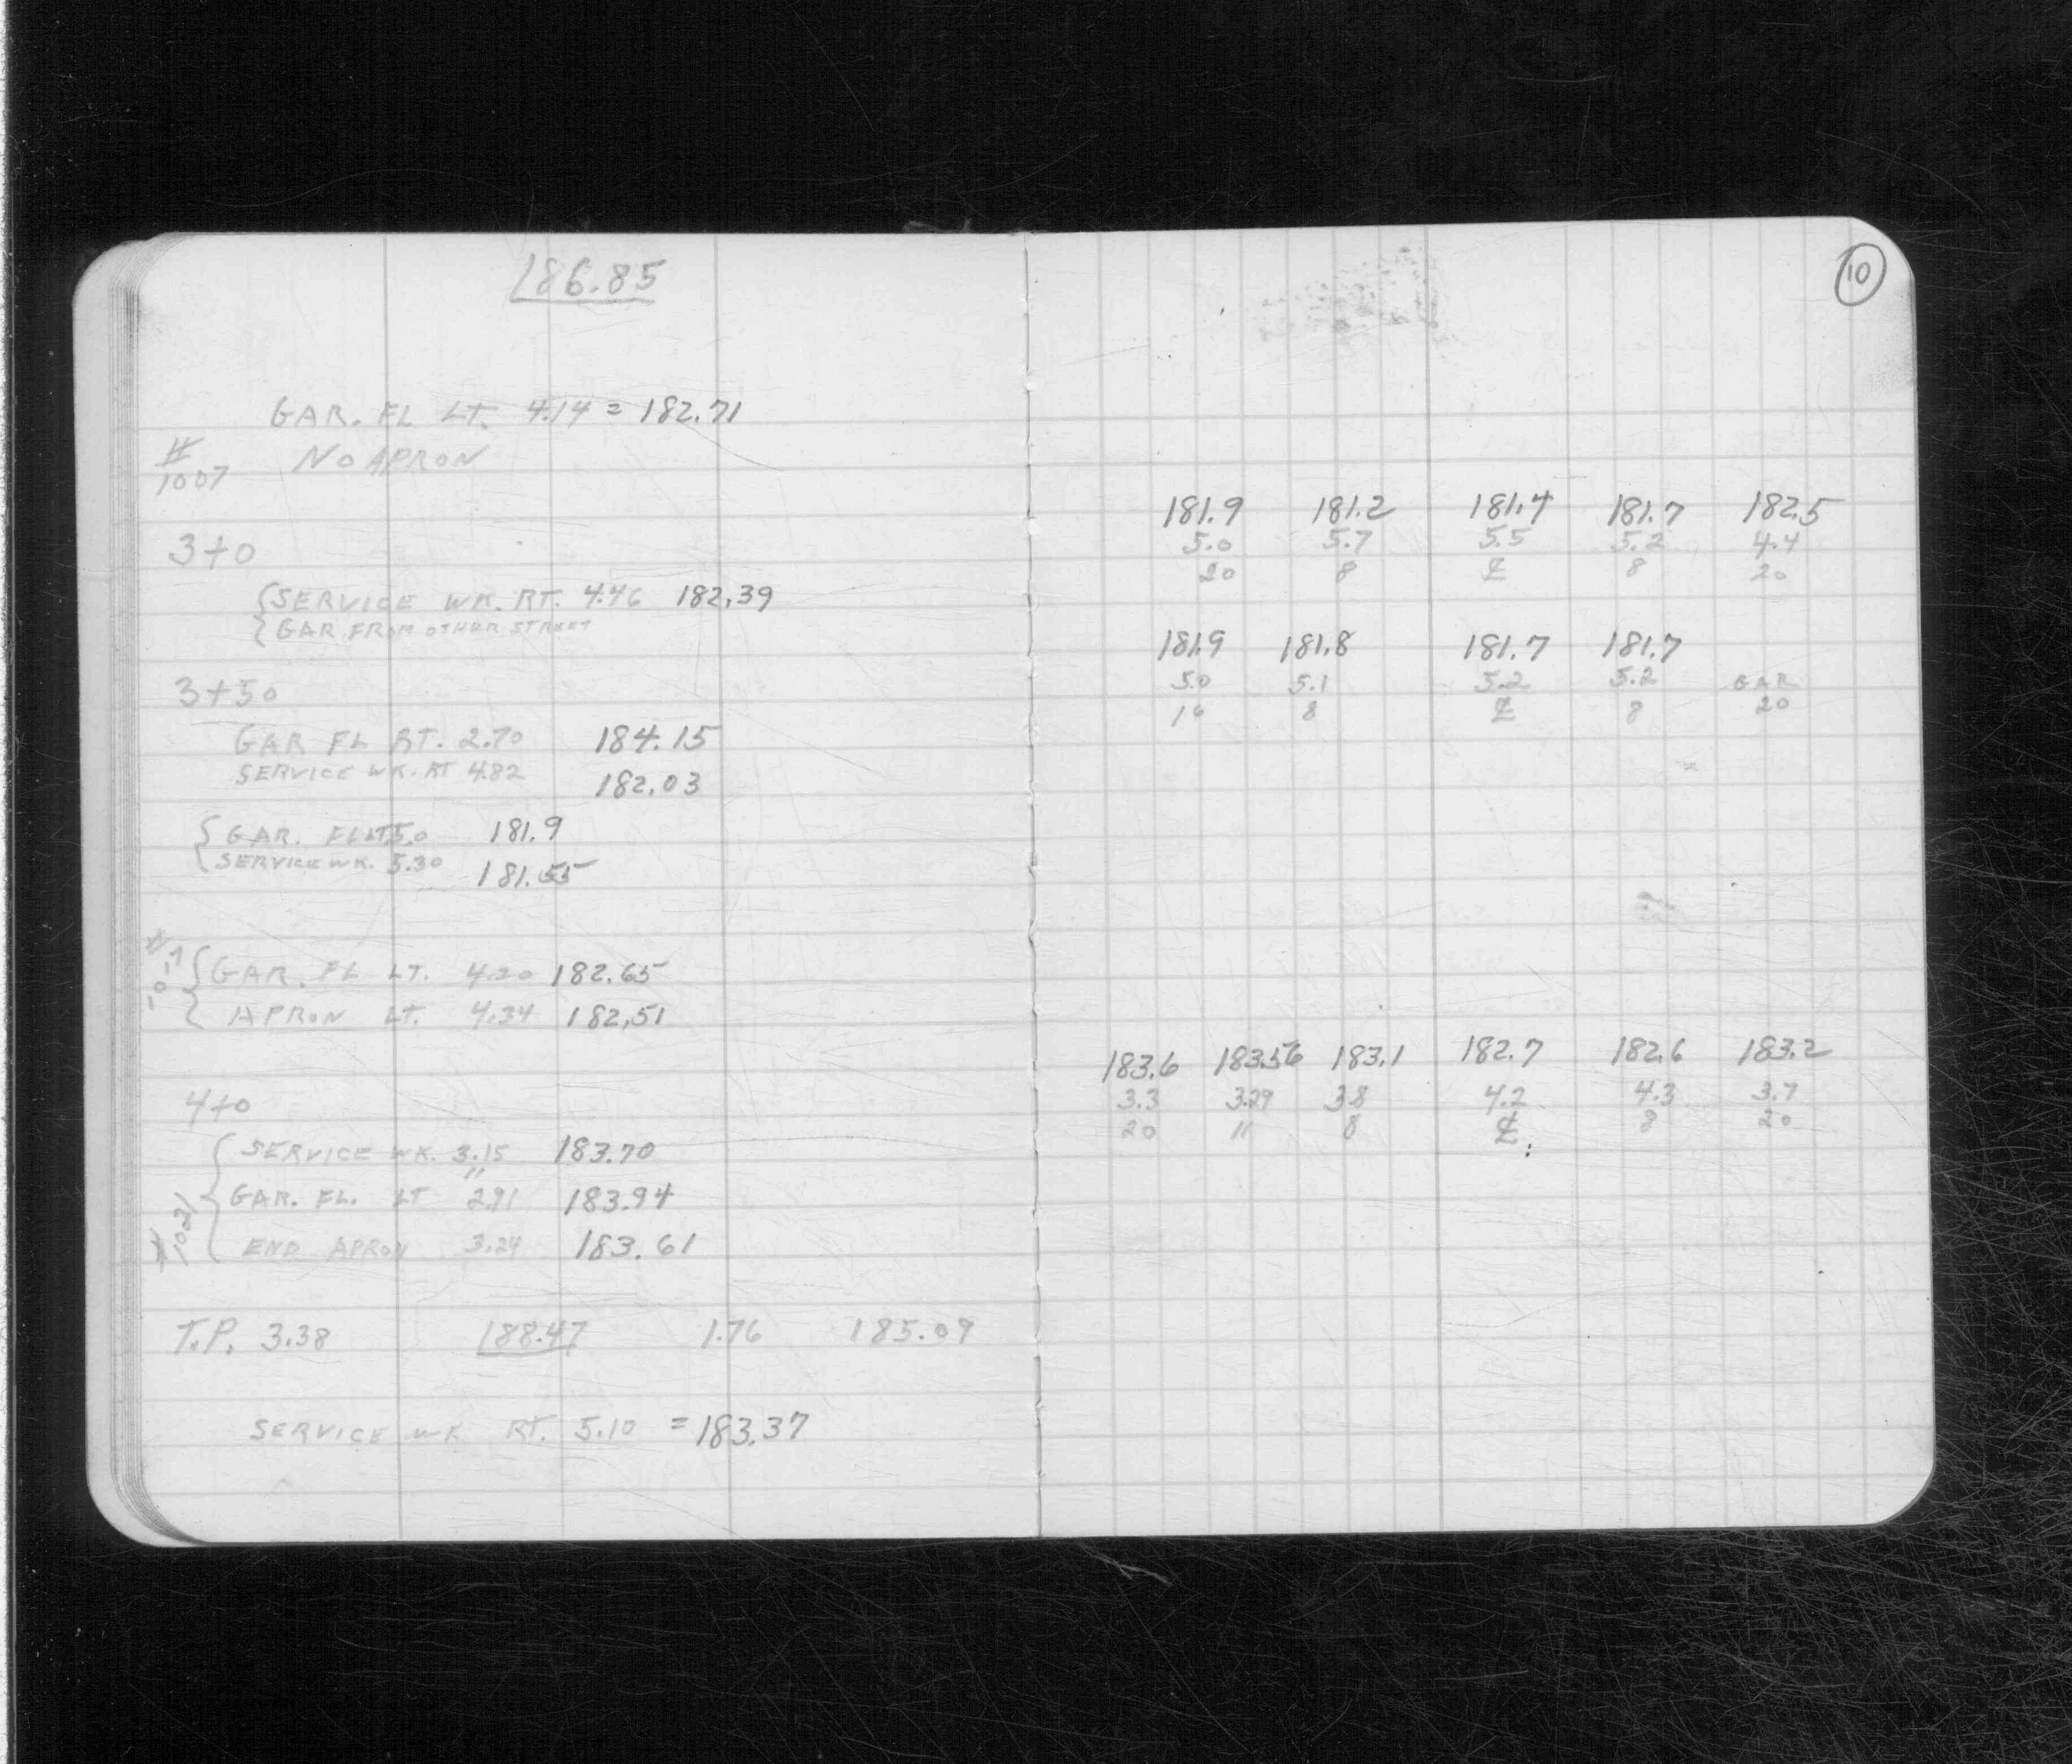 186.85
GAR. FL LT. 4.14 = 182.71
# 1007 NO APRON
3+0
{SERVICE WK. RT. 4.46 182.39
{GAR FROM OTHER STREET
3+50
GAR FL RT. 2.70 184.15
SERVICE WK. RT 4.82 182.03
{GAR. FL LT 5.0 181.9
{SERVICE WK. 5.30 181.55
# 1017 {GAR. FL LT. 4.20 182.65
APRON LT. 4.34 182.51
4+0
SERVICE WK. 3.15 183.70
"
# 1021 {GAR. FL. LT 2.91 183.94
END APRON 3.24 183.61
T.P. 3.38 188.47 1.76 185.09
SERVICE WK RT. 5.10 = 183.37
10
181.9 181.2 181.4 181.7 182.5
5.0 5.7 5.5 5.2 4.4
20 8 ℄ 8 20
181.9 181.8 181.7 181.7
5.0 5.1 5.2 5.2 GAR
8 ℄ 8 20
183.6 183.56 183.1 182.7 182.6 183.2
3.3 3.29 3.8 4.2 4.3 3.7
20 11 8 ℄ 8 20